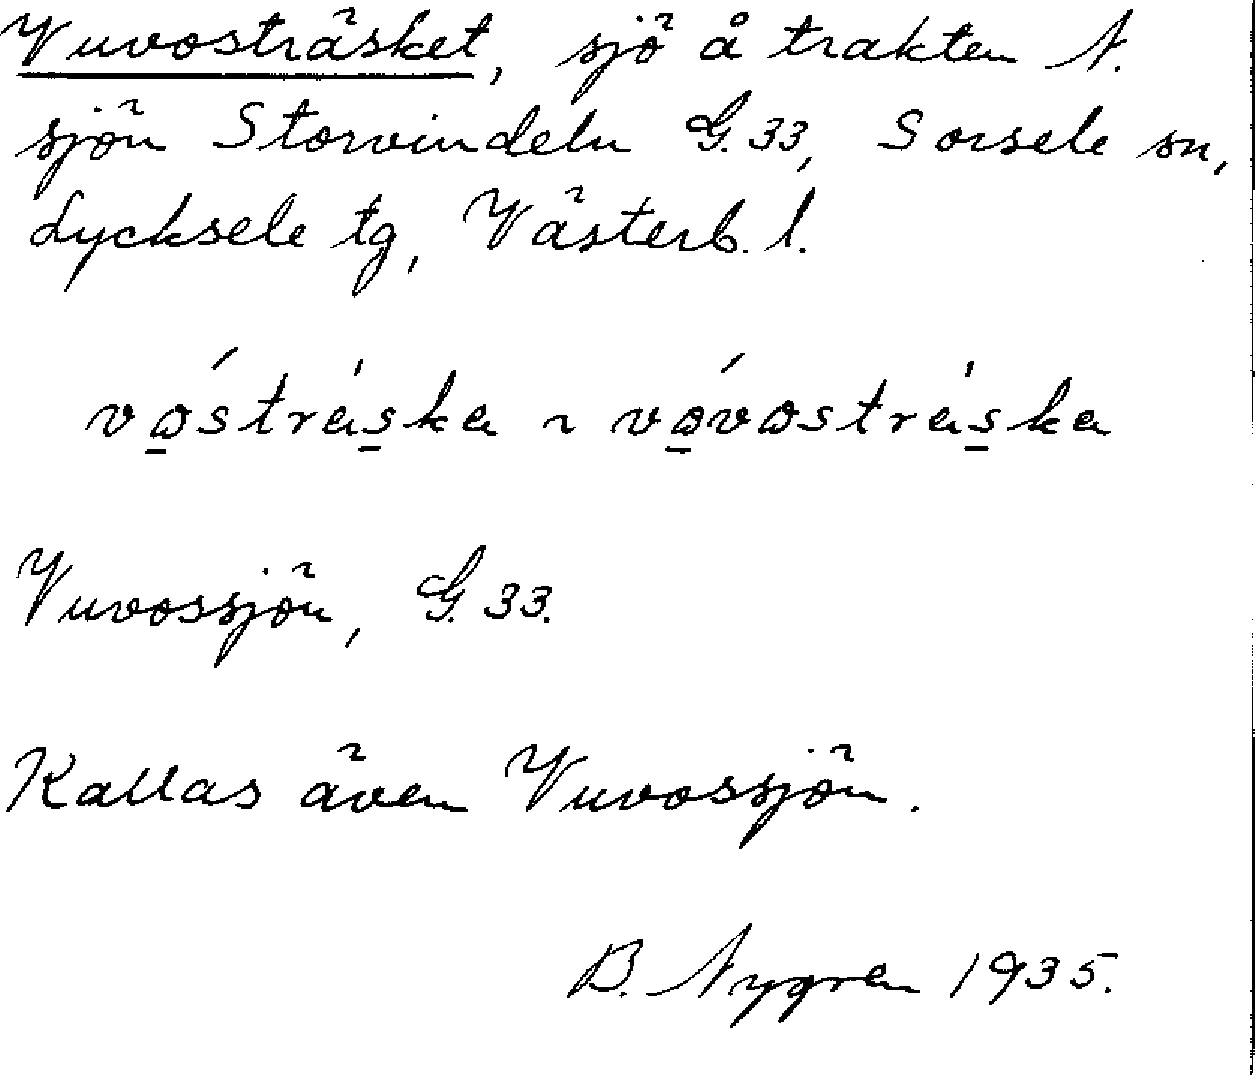 Vuvosträsket, sjö å trakten N.
sjön Storvindeln G.33, Sorsele sn,
Lycksele tg, Västerb. l.
vó̲strä́s̲ka ~ vó̲vosträ́s̲ka
Vuvossjön, G.33.
Kallas även Vuvossjön.
B. Nygren 1935.